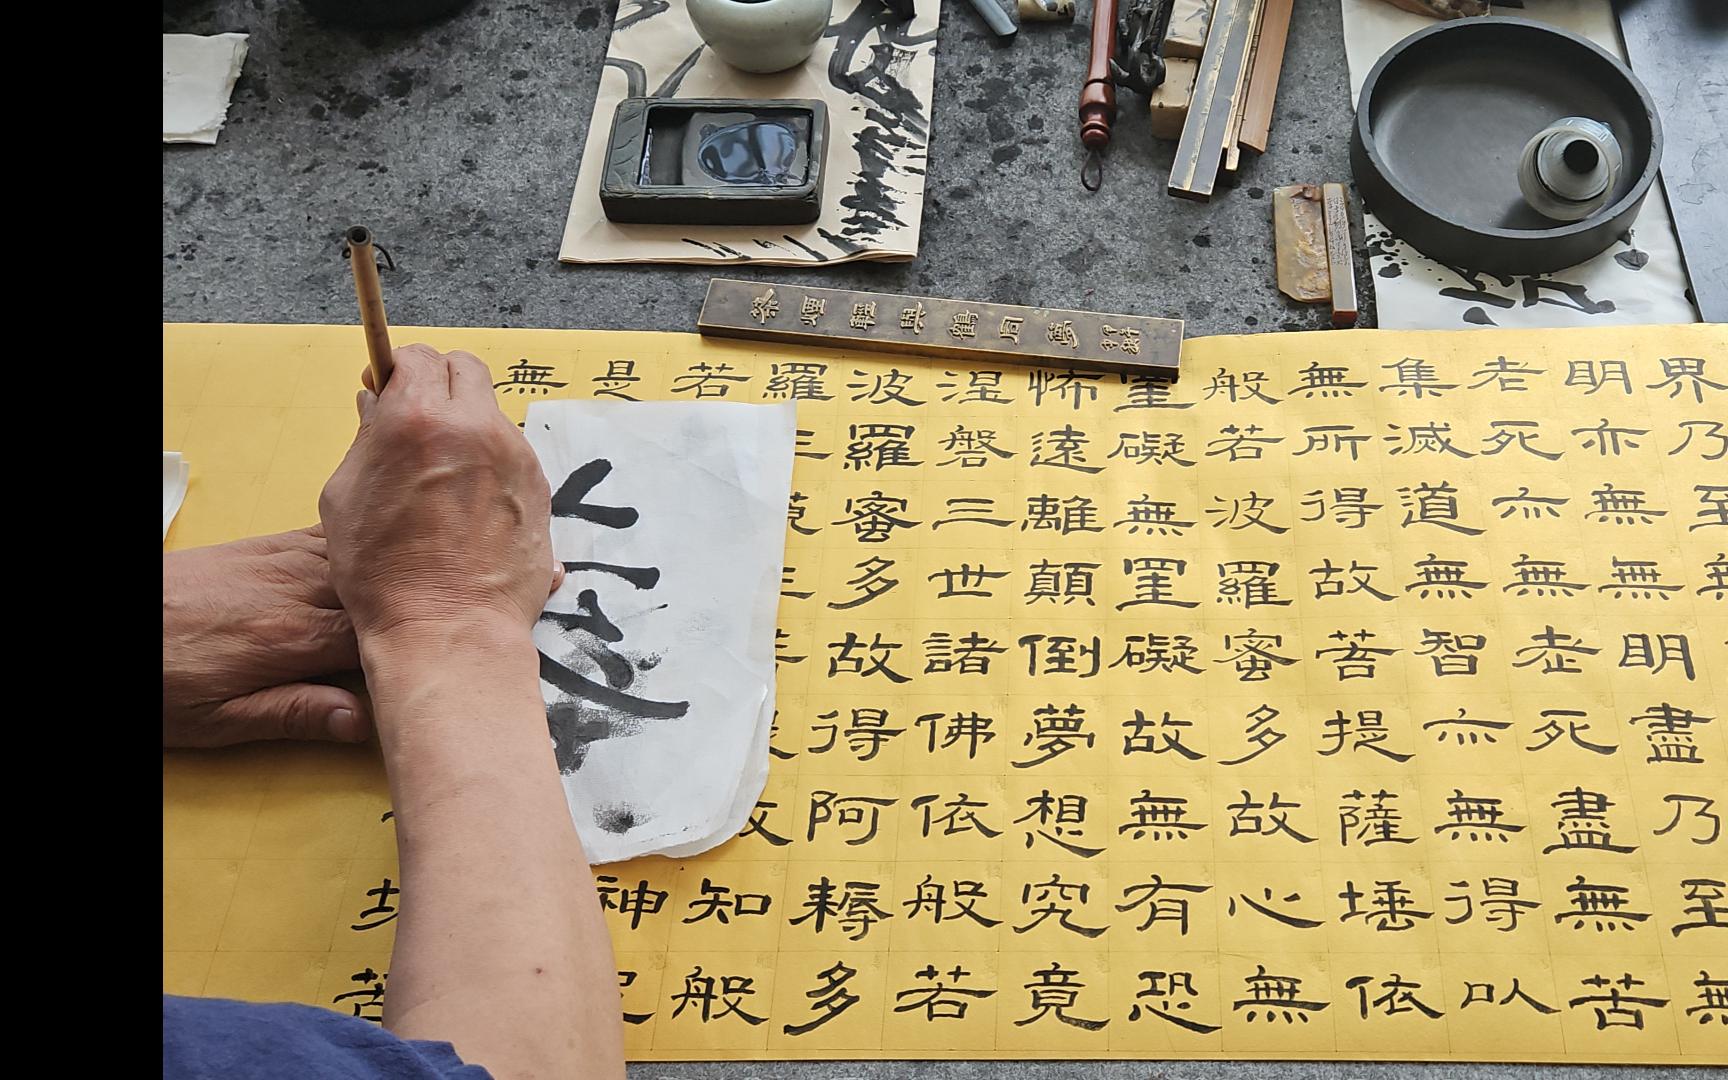 界乃至
明亦無無明盡乃至無
老死亦無老死盡無苦
集滅道無智亦無得以
無所得故菩提薩埵依
般若波羅蜜多故心無
罣礙無罣礙故無有恐
怖遠離顛倒夢想究竟
涅磐三世諸佛依般若
波羅蜜多故得阿耨多
羅三藐三菩提故知般
若神
是
無
茶煙輕與鶴同夢